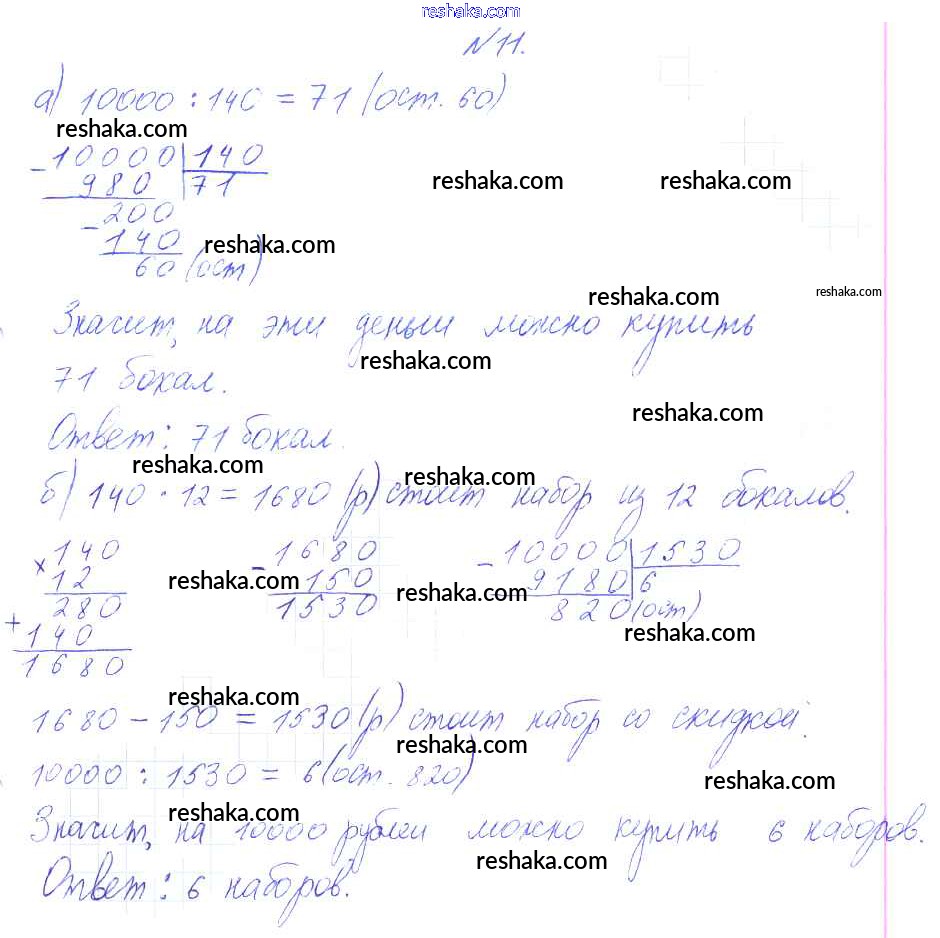 reshaka.com
№11.
а) 10000 : 140 = 71 (ост. 60)
reshaka.com
- 10000 | 140
980 | 71
reshaka.com reshaka.com
- 200
140
reshaka.com
60 (ост)
reshaka.com
reshaka.com
Значит, на эти деньги можно купить
reshaka.com
71 бокал.
reshaka.com
Ответ: 71 бокал.
reshaka.com
reshaka.com
б) 140 · 12 = 1680 (р) стоит набор из 12 бокалов.
× 140 - 1680 - 10000 | 1530
12 150 9180 | 6
reshaka.com reshaka.com
280 1530 820 (ост)
+ 140
reshaka.com
1680
reshaka.com
1680 - 150 = 1530 (р) стоит набор со скидкой.
reshaka.com
10000 : 1530 = 6 (ост. 820)
reshaka.com
reshaka.com
Значит, на 10000 рублей можно купить 6 наборов.
reshaka.com
Ответ: 6 наборов.